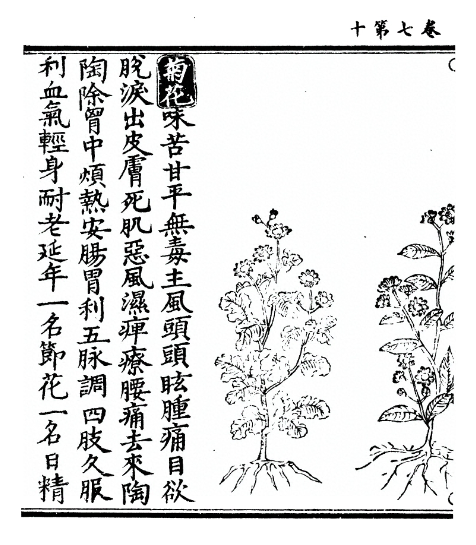 卷七第十
菊花味苦甘平無毒主風頭頭眩腫痛目欲
脫淚出皮膚死肌惡風濕痺療腰痛去來陶
陶除胷中煩熱安腸胃利五脉調四肢久服
利血氣輕身耐老延年一名節花一名日精